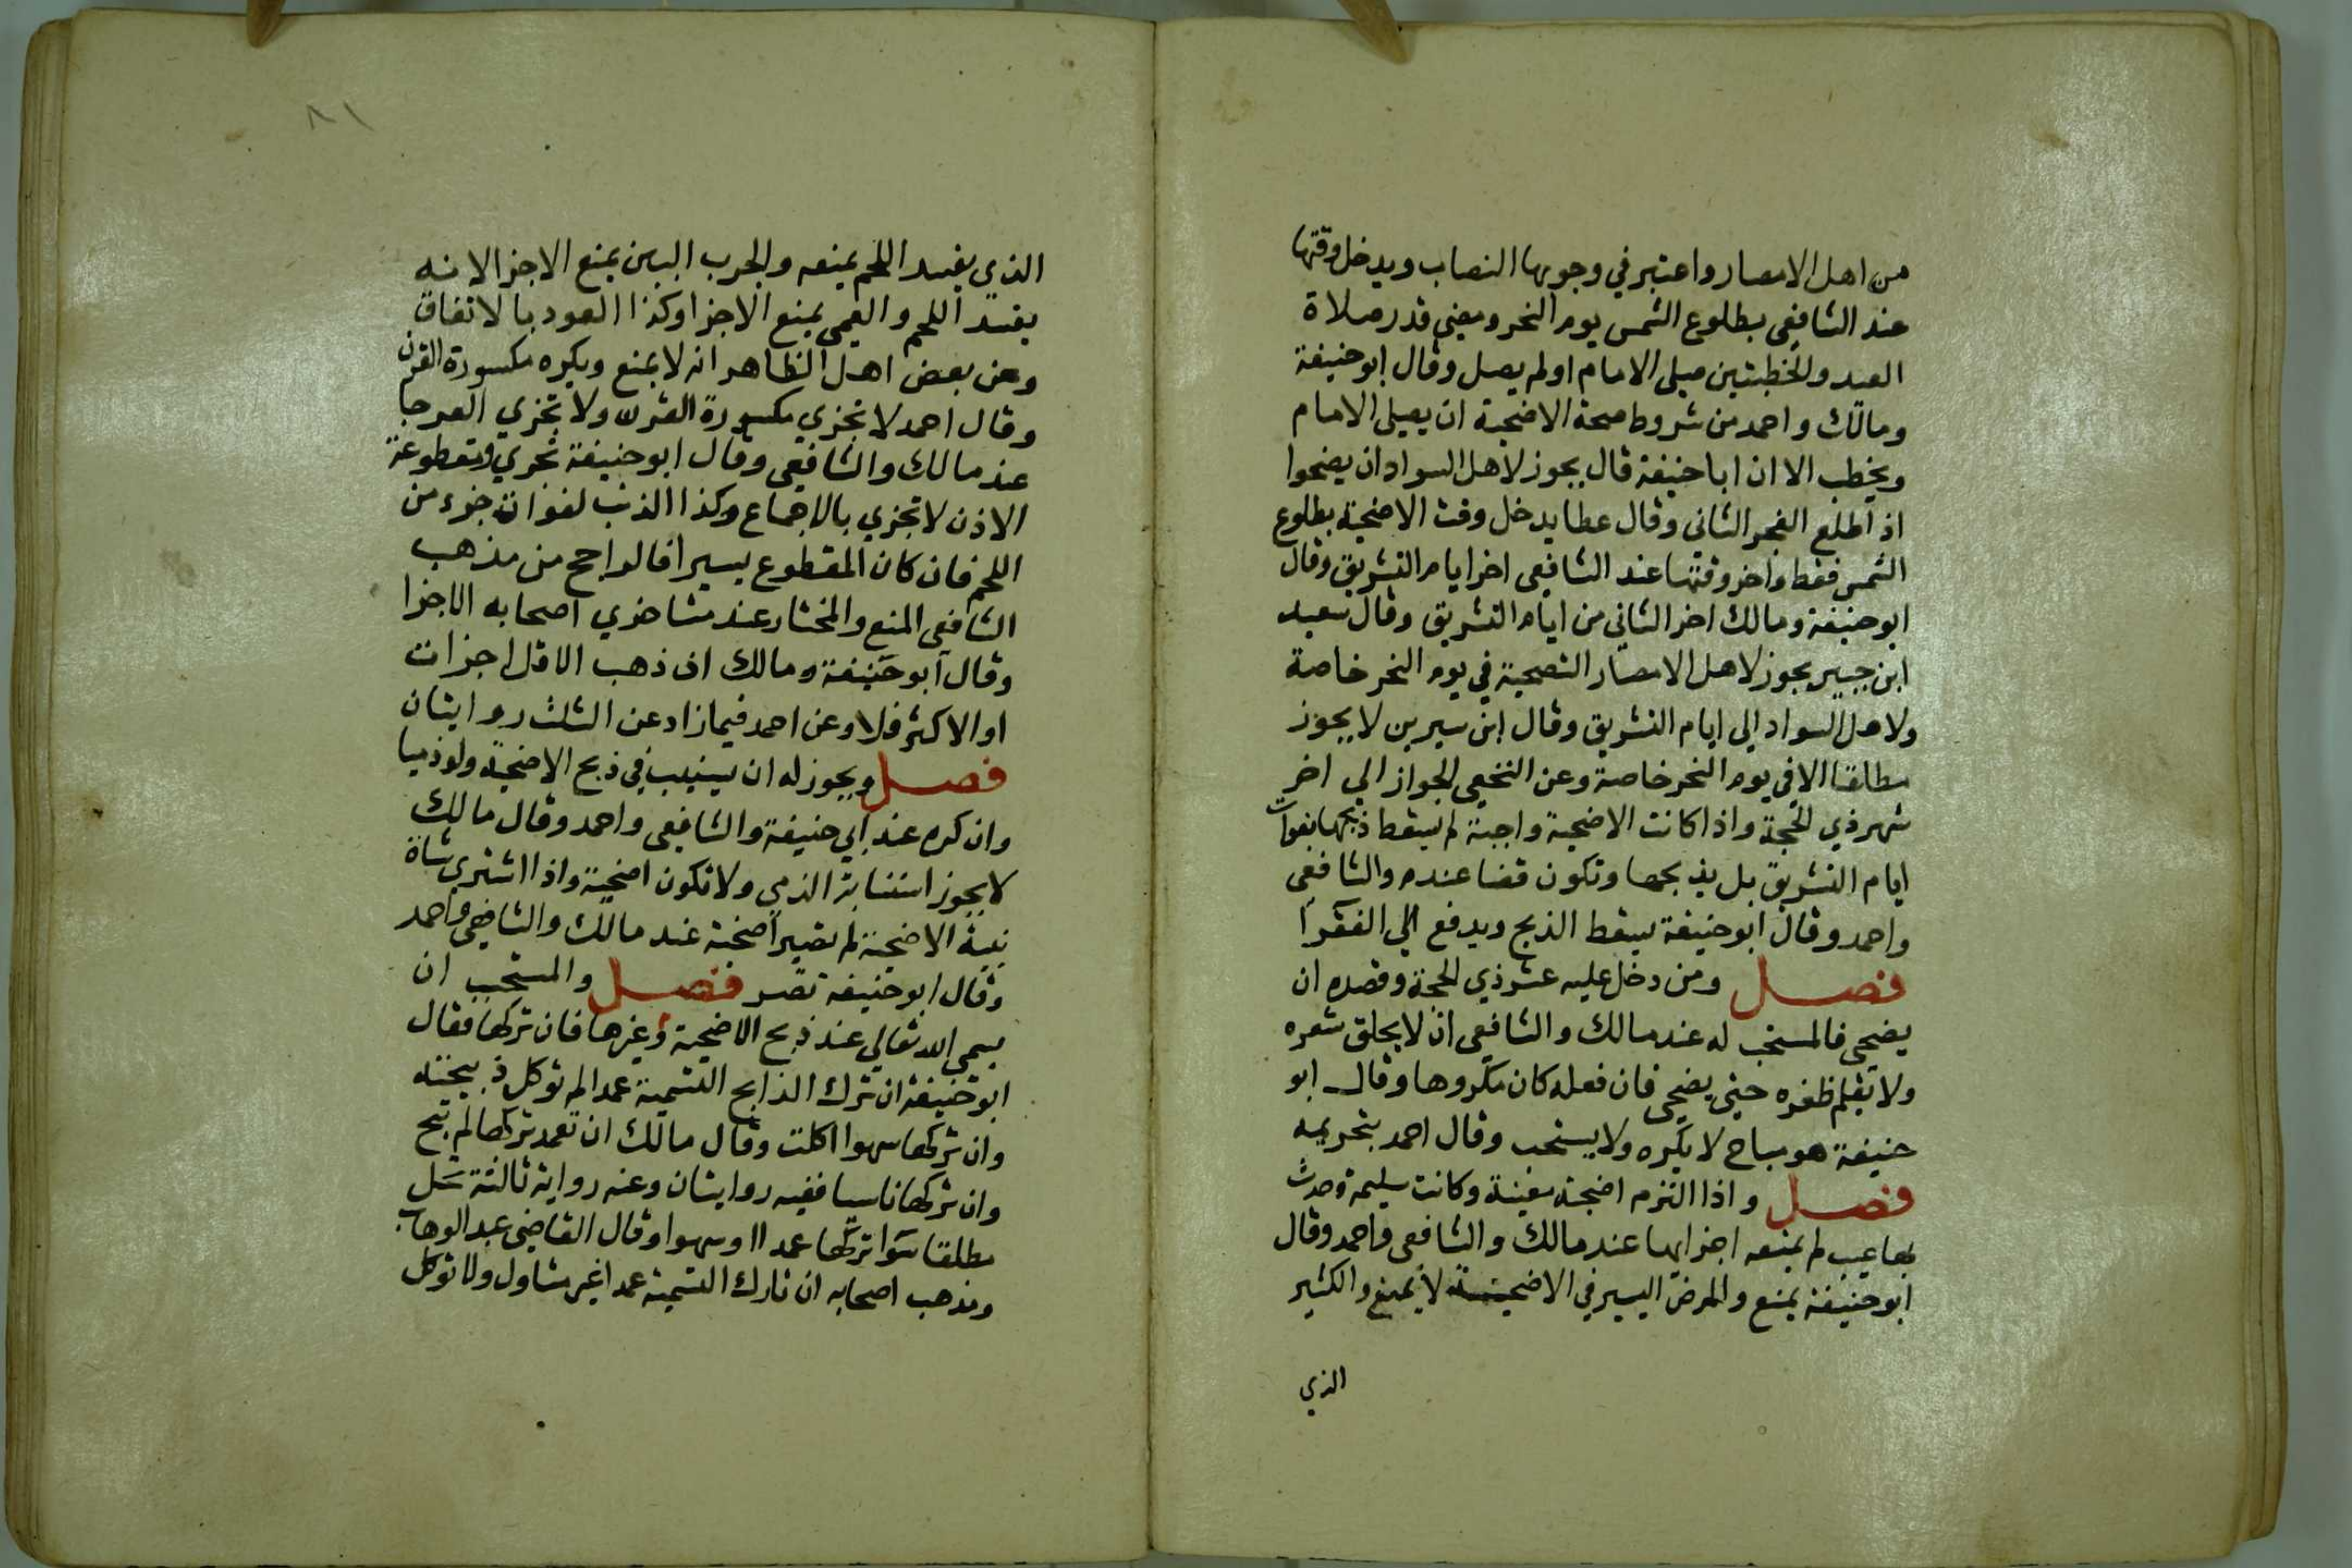 من اهل الامصار واعتبر في وجوبها النصاب ويدخل وقتها
عند الشافعي بطلوع الشمس يوم النحر ومضي قدر صلاة
العيد والخطبتين صلى الامام او لم يصل وقال ابو حنيفة
ومالك واحمد من شروط صحة الاضحية ان يصلى الامام
ويخطب الا ان ابا حنيفة قال يجوز لاهل السواد ان يضحوا
اذا طلع الفجر الثاني وقال عطا يدخل وقت الاضحية بطلوع
الشمس فقط واخر وقتها عند الشافعي اخر ايام التشريق وقال
ابو حنيفة ومالك اخر الثاني من ايام التشريق وقال سعيد
ابن جبير يجوز لاهل الامصار التضحية في يوم النحر خاصة
ولاهل السواد الي ايام التشريق وقال ابن سيرين لا يجوز
مطلقا الا في يوم النحر خاصة وعن النخعي الجواز الي اخر
شهر ذي الحجة واذا كانت الاضحية واجبة لم يسقط ذبحها بفوات
ايام التشريق بل يذبحها وتكون قضا عنده والشافعي
واحمد وقال ابو حنيفة يسقط الذبح ويدفع الي الفقرا
فصل ومن دخل عليه عشر ذي الحجة وقصده ان
يضحي فالمستحب له عند مالك والشافعي ان لا يحلق شعره
ولا يقلم ظفره حتى يضحي فان فعله كان مكروها وقال ابو
حنيفة هو مباح لا يكره ولا يستحب وقال احمد بتحريمه
فصل واذا التزم اضحية معينة وكانت سليمة وحدث
بها عيب لم يمنعه اجزايها عند مالك والشافعي واحمد وقال
ابو حنيفة يمنع والمرض اليسير في الاضحية لا يمنع والكثير
الذي
٨١
الذي يفسد اللحم يمنعه والجرب البين يمنع الاجزا لانه
يفسد اللحم والعمي يمنع الاجزا وكذا العود بالاتفاق
وعن بعض اهل الظاهر انه لا يمنع ويكره مكسورة القرن
وقال احمد لا تجزي مكسورة القرن ولا تجزي العرجا
عند مالك والشافعي وقال ابو حنيفة تجزي ومقطوعة
الاذن لا تجزي بالاجماع وكذا الذنب لفوات جزء من
اللحم فان كان المقطوع يسيرا فالراجح من مذهب
الشافعي المنع والمختار عند متاخري اصحابه الاجزا
وقال ابو حنيفة ومالك ان ذهب الاقل اجزات
او الاكثر فلا وعن احمد فيما زاد عن الثلث روايتان
فصل ويجوز له ان يستنيب في ذبح الاضحية ولو ذميا
وان كره عند ابي حنيفة والشافعي واحمد وقال مالك
لا يجوز استنابة الذمي ولا تكون اضحية واذا اشتري شاة
بنية الاضحية لم تصير اضحية عند مالك والشافعي واحمد
وقال ابو حنيفة تصر فصل والمستحب ان
يسمي الله تعالي عند ذبح الاضحية وغيرها فان تركها فقال
ابو حنيفة ان ترك الذابح التسمية عمدا لم توكل ذبيحته
وان تركها سهوا اكلت وقال مالك ان تعمد تركها لم تبح
وان تركها ناسيا ففيه روايتان وعنه رواية ثالثة تحل
مطلقا سوا تركها عمدا او سهوا وقال القاضي عبد الوهاب
ومذهب اصحابه ان تارك التسمية عمدا غير متاول ولا توكل